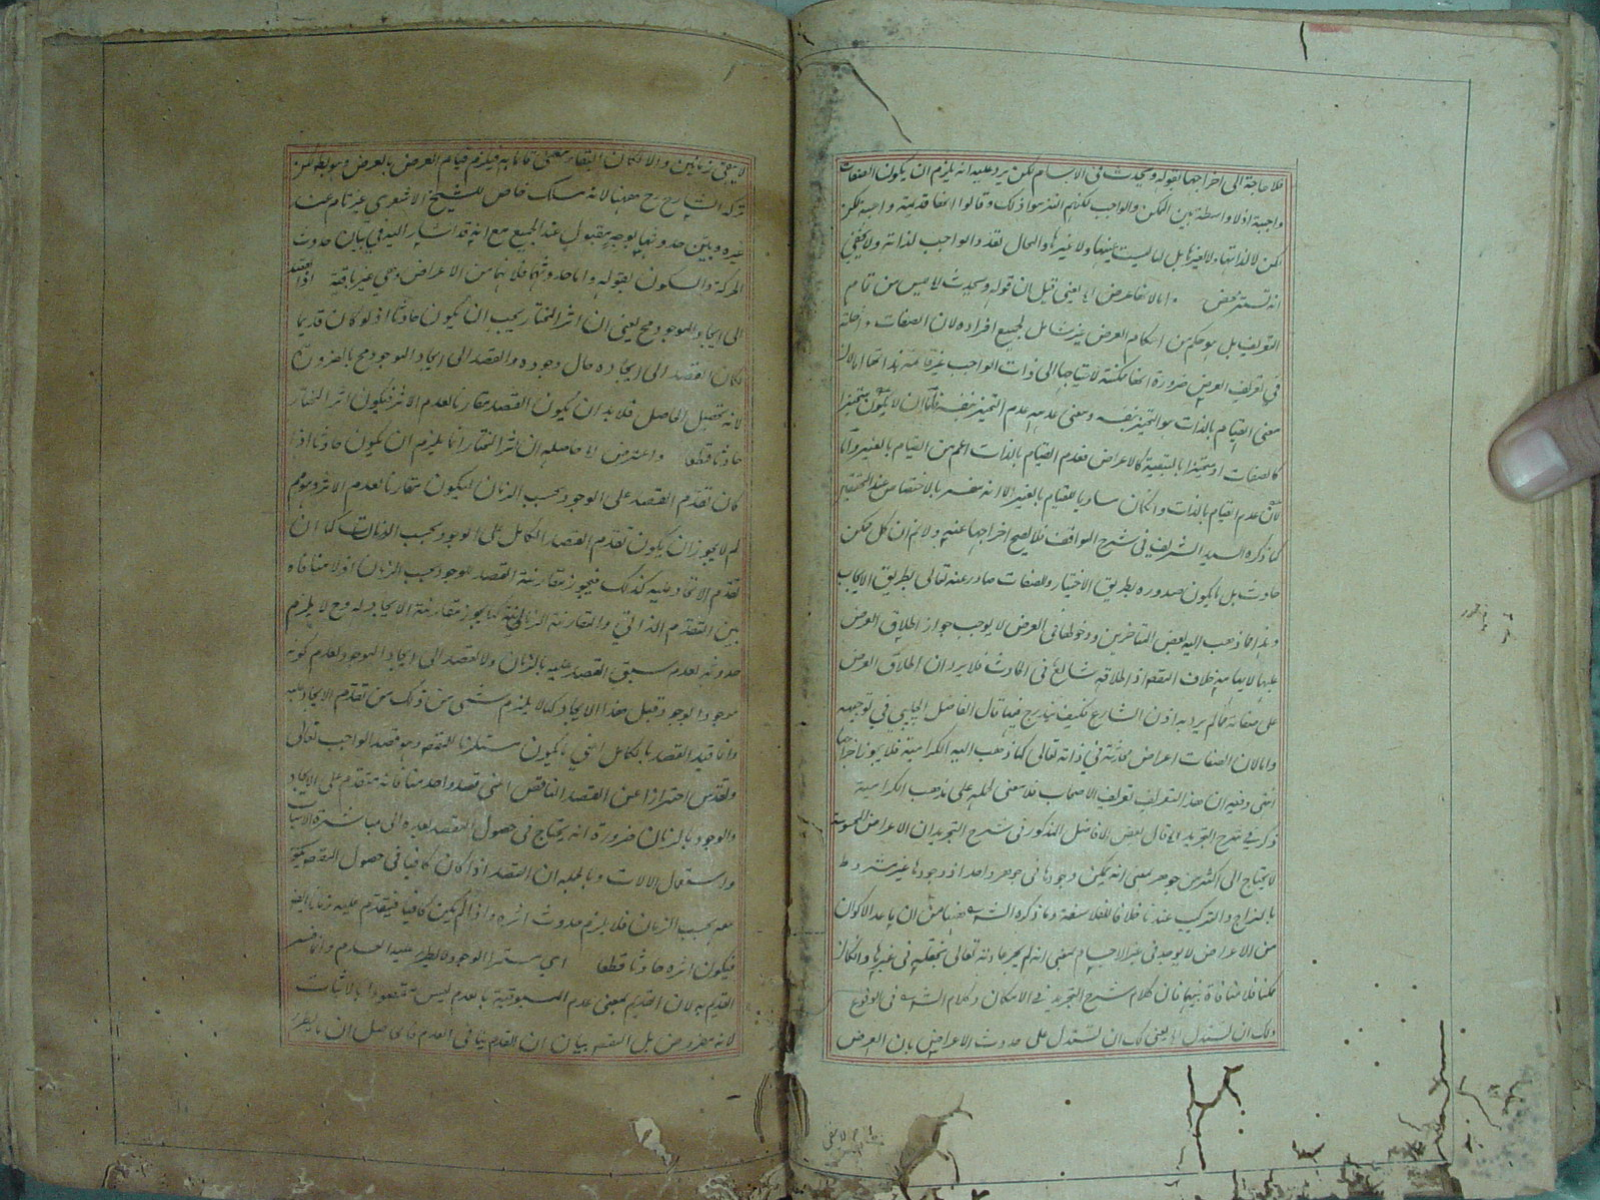 فلا حاجة الى اخراجها بقوله ويحدث فى الاجسام لكن يرد عليه انه يلزم ان يكون الصفات
واجبة اذ لا واسطة بين الممكن والواجب لكنهم التزموا ذلك وقالوا انها قديمة واجبة لكن
لكن لا لذاتها ولا لغيرها بل لما ليست عينها ولا غيرها والمحال تعدد الواجب لذاته ولا يخفى
انه تستر محض اما لانها عرض الخ يعنى قيل ان قوله ويحدث لا ليس من تمام
التعريف بل هو حكم من احكام العرض غير شامل لجميع افراده لان الصفات داخلة
فى تعريف العرض ضرورة انها ممكنة لاحتياجها الى ذات الواجب غير قائمة بذاتها اما لان
معنى القيام بالذات هو التحيز بنفسه ومعنى عدمه عدم التحيز بنفسه فاما ان لا يكون متحيزا
كالصفات او متحيزا بالتبعية كالاعراض فعدم القيام بالذات اعم من القيام بالغير واما
لان عدم القيام بالذات وان كان مساويا للقيام بالغير الا انه مفسر بالاختصاص عند المحققين
كما ذكره السيد الشريف فى شرح المواقف فلا يصح اخراجها عنه ولا نم ان كل ممكن
حادث بل ما يكون صدوره بطريق الاختيار والصفات صادر عنه تعالى بطريق الايجاب
وهذا ما ذهب اليه بعض المتاخرين ودخولها فى العرض لا يوجب جواز اطلاق العرض
عليها لايهامه خلاف المقصود اذ اطلاقه شايع فى الحادث فلا يرد ان اطلاق العرض
على صفاته مما لم يرد به اذن الشارع فكيف يندرج فيها قال الفاضل الچلپي في توجيهه
واما لان الصفات اعراض حادثة في ذاته تعالى كما ذهب اليه الكرامية فلا يجوز اخراجها
انتهى وفيه ان هذا التعريف تعريف الاصحاب فلا معنى لحمله على مذهب الكرامية
ذكر في شرح التجريد الخ قال بعض الافاضل المذكور فى شرح التجريد ان الاعراض المحسوسة
لا يحتاج الى اكثر من جوهر بمعنى انه يمكن وجودها فى جوهر واحد اذ وجودها غير مشروط
بالمزاج والتركيب عندنا خلافا للفلاسفة وما ذكره الشـ ههنا من ان ما عدا الاكوان
من الاعراض لا يوجد فى غير الاجسام بمعنى انه لم يجر عادته تعالى بخلقه فى غيرها وان كان
ممكنا فلا منافاة بينهما فان كلام شرح التجريد في الامكان وكلام الشـ فى الوقوع
ولك ان تستدل الخ يعنى لك ان تستدل على حدوث الاعراض بان العرض
لا يبقى زمانين والا لكان البقاء معنى قائما به فيلزم قيام العرض بالعرض وهو بط لكن
تركه الشارح رح ههنا لانه مسلك خاص للشيخ الاشعري غير تام عند
غيره وبين حدوثها بوجه مقبول عند الجميع مع انه قد اشار اليه في بيان حدوث
الحركة والسكون بقوله واما حدوثهما فلانهما من الاعراض وهي غير باقية اذ القصد
الى ايجاد الموجود مح يعنى ان اثر المختار يجب ان يكون حادثا اذ لو كان قديما
لكان القصد الى ايجاده حال وجوده والقصد الى ايجاد الموجود مح بالضرورة
لانه تحصيل الحاصل فلا بد ان يكون القصد مقارنا لعدم الاثر فيكون اثر المختار
حادثا قطعا واعترض الخ حاصله ان اثر المختار انما يلزم ان يكون حادثا اذا
كان تقدم القصد على الوجود بحسب الزمان ليكون مقارنا لعدم الاثر وهو مم
لم لا يجوز ان يكون تقدم القصد الكامل على الوجود بحسب الذات كما ان
تقدم الايجاد عليه كذلك فيجوز مقارنة القصد للوجود بحسب الزمان اذ لا منافاة
بين التقدم الذاتي والمقارنة الزمانية كما يجوز مقارنة الايجاد له وح لا يلزم
حدوثه لعدم سبق القصد عليه بالزمان ولا القصد الى ايجاد الموجود لعدم كونه
موجودا بوجود قبل هذا الايجاد كما لا يلزم شئ من ذلك من تقدم الايجاد عليه
وانما قيد القصد بالكامل اعني ما يكون مستلزما للمقصود وهو قصد الواجب تعالى
وتقدس احترازا عن القصد الناقص اعنى قصد واحد منا فانه متقدم على الايجاد
والوجود بالزمان ضرورة انه يحتاج فى حصول المقصد بعده الى مباشرة الاسباب
واستعمال الالات وبالجملة ان القصد اذا كان كافيا فى حصول المقصود يكون
معه بحسب الزمان فلا يلزم حدوث اثره واذا لم يكن كافيا فيتقدم عليه زمانا ايضا
فيكون اثره حادثا قطعا اى مستمرا الوجود لا يطرء عليه العدم وانما فسر
القديم به لان القديم بمعنى عدم المسبوقية بالعدم ليس مقصودا بالاثبات
لانه مفروض بل المقصود بيان ان القدم ينافى العدم فالحاصل ان ما يطرء